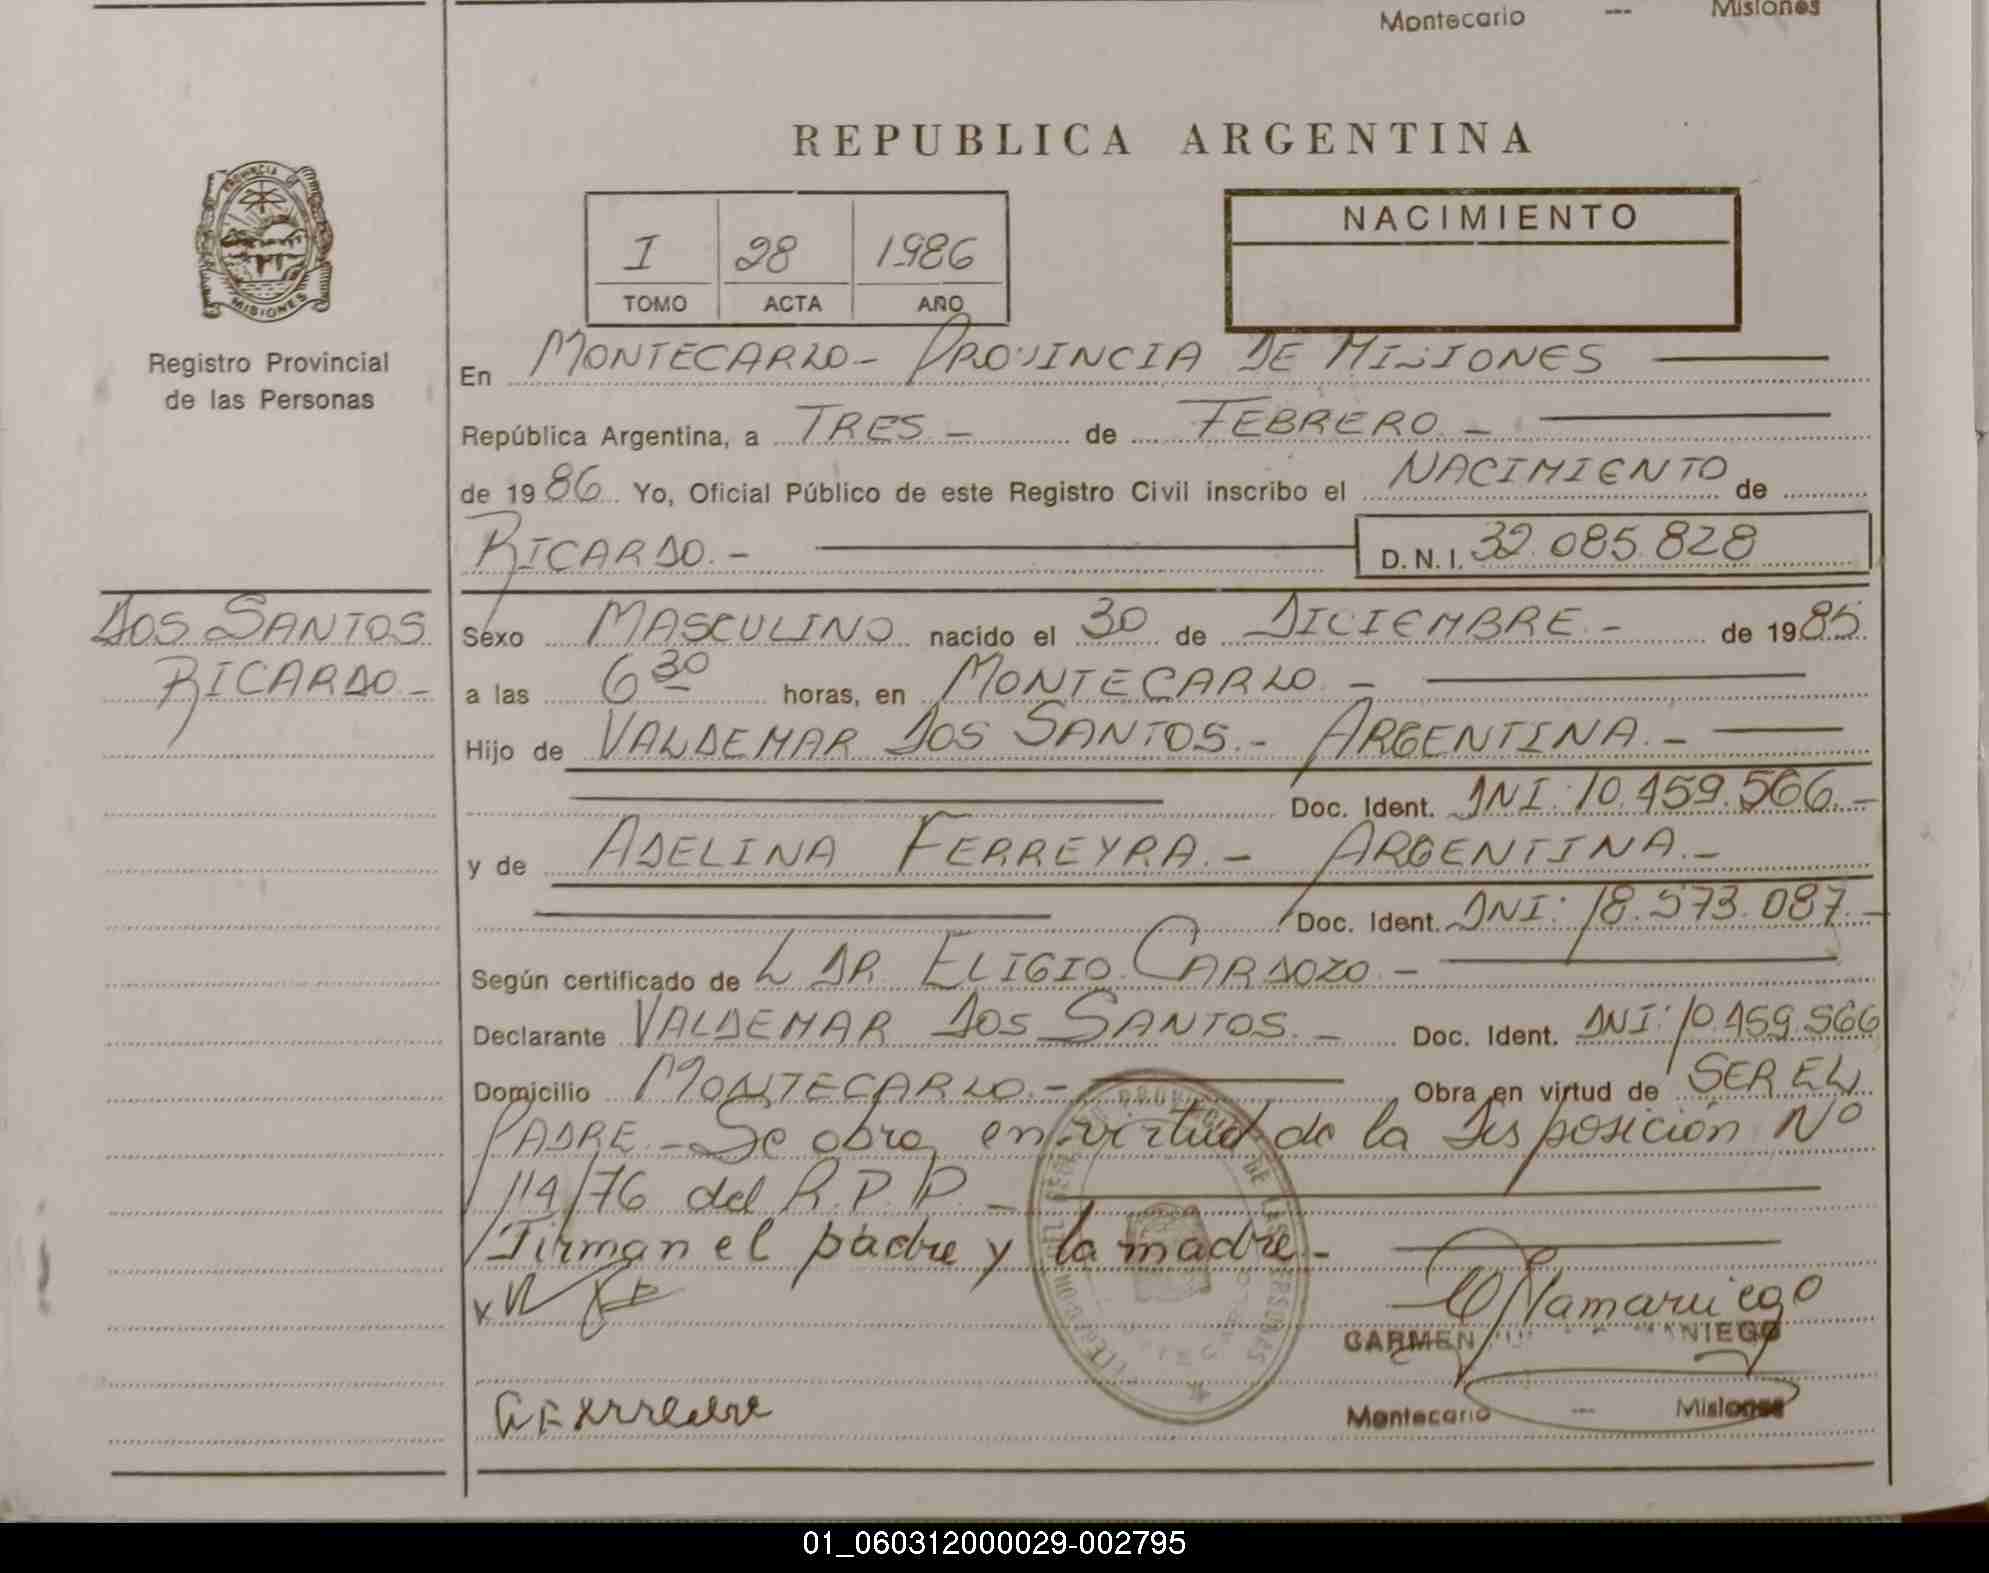 Montecarlo --- Misiones
REPUBLICA ARGENTINA
PROVINCIA DE
MISIONES
Registro Provincial
de las Personas
I 28 1986
TOMO ACTA AÑO
NACIMIENTO
En MONTECARLO - PROVINCIA DE MISIONES
República Argentina, a TRES - de FEBRERO -
de 1986 Yo, Oficial Público de este Registro Civil inscribo el NACIMIENTO de
RICARDO.- D.N.I. 32.085.828
DOS SANTOS
RICARDO -
Sexo MASCULINO nacido el 30 de DICIEMBRE.- de 1985
a las 6 30 horas, en MONTECARLO.-
Hijo de VALDEMAR DOS SANTOS.- ARGENTINA.-
Doc. Ident. DNI: 10.459.566.-
y de ADELINA FERREYRA.- ARGENTINA.-
Doc. Ident. DNI: 18.573.087.-
Según certificado de L DR ELIGIO CARDOZO.-
Declarante VALDEMAR DOS SANTOS.- Doc. Ident. DNI: 10.459.566
Domicilio MONTECARLO.- Obra en virtud de SER EL
PADRE.- Se obra en virtud de la Disposición Nº
114/76 del R.P.P.-
Firman el padre y la madre.-
CARMEN
Montecarlo --- Misiones
01_060312000029-002795